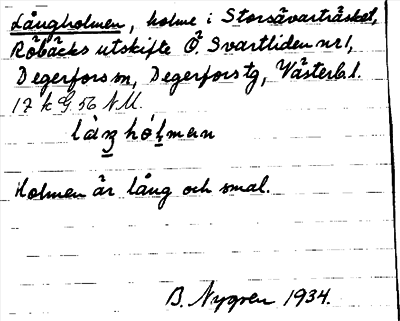 Långholmen, holme i Storsävarträsket,
Röbäcks utskifte Ö. Svartliden nr 1,
Degerfors sn, Degerfors tg, Västerb. l.
17 k G. 56 N.M.
holmen
Holmen är lång och smal.
B. Nygren 1934.